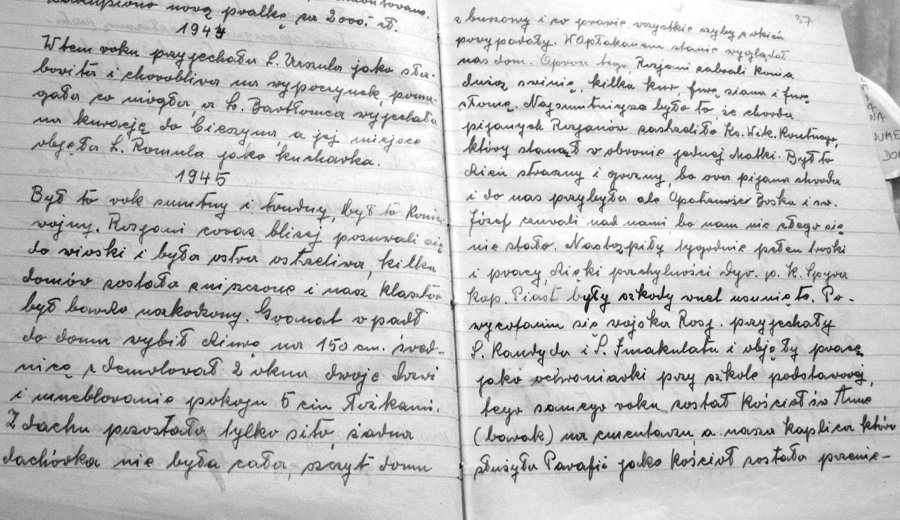 zakupiono nową pralkę za 2000 zł.
1944
W tem roku przyjechała S. Urszula jako sła-
bowita i chorobliwa na wypoczynek, poma-
gała co mogła, a S. Bartłomea wyjechała
na kurację do Cieszyna, a jej miejsce
objęła S. Romula jako kucharka.
1945
Był to rok smutny i trudny, był to koniec
wojny. Rosjani coraz bliżej posuwali się
do wioski i była ostra ostrzeliwa, kilka
domów zostało zniszczone i nasz klasztór
był bardzo uszkodzony. Granat wpadł
do domu wybił dziurę na 150 cm. śred-
nicę zdemolował 2 okna dwoje drzwi
i umeblowanie pokoju 5 ciu łóżkami.
Z dachu pozostało tylko sito, żadna
dachówka nie była cała, szczyt domu
37
z burzony i co prawie wszystkie szyby z okien
powypadały. W opłakanem stanie wyglądał
nas dom. Oprócz tego, Rosjani zabrali konia
dużą świnię, kilka kur, furę siana i furę
słomę. Najsmutniejsze było to że chorda
pijanych Rosjanów zastrzeliła Ks. Wik.
który stanął w obronie jednej Matki. Był to
dzień straszny i groźny, bo owa pijana chorda
i do nas przybyła ale Opatrzność Boska i św.
Józef czuwali nad nami bo nam nic złego się
nie stało. Nastąpiły tygodnie pełen troski
i pracy dzięki przychylności dyr. p. K. Spyra
kop. Piast były szkody wnet usunięto. Po-
wycofaniu się wojska Rosj. przyjechały
S. Kandyda i S. Imakulata i objęły pracę
jako ochroniarki przy szkole podstawowej,
tego samego roku został Kościół św. Anne
(barak) na cmentarzu a nasza kaplica która
służyła Parafii jako kościół została przenie-
NA
DO